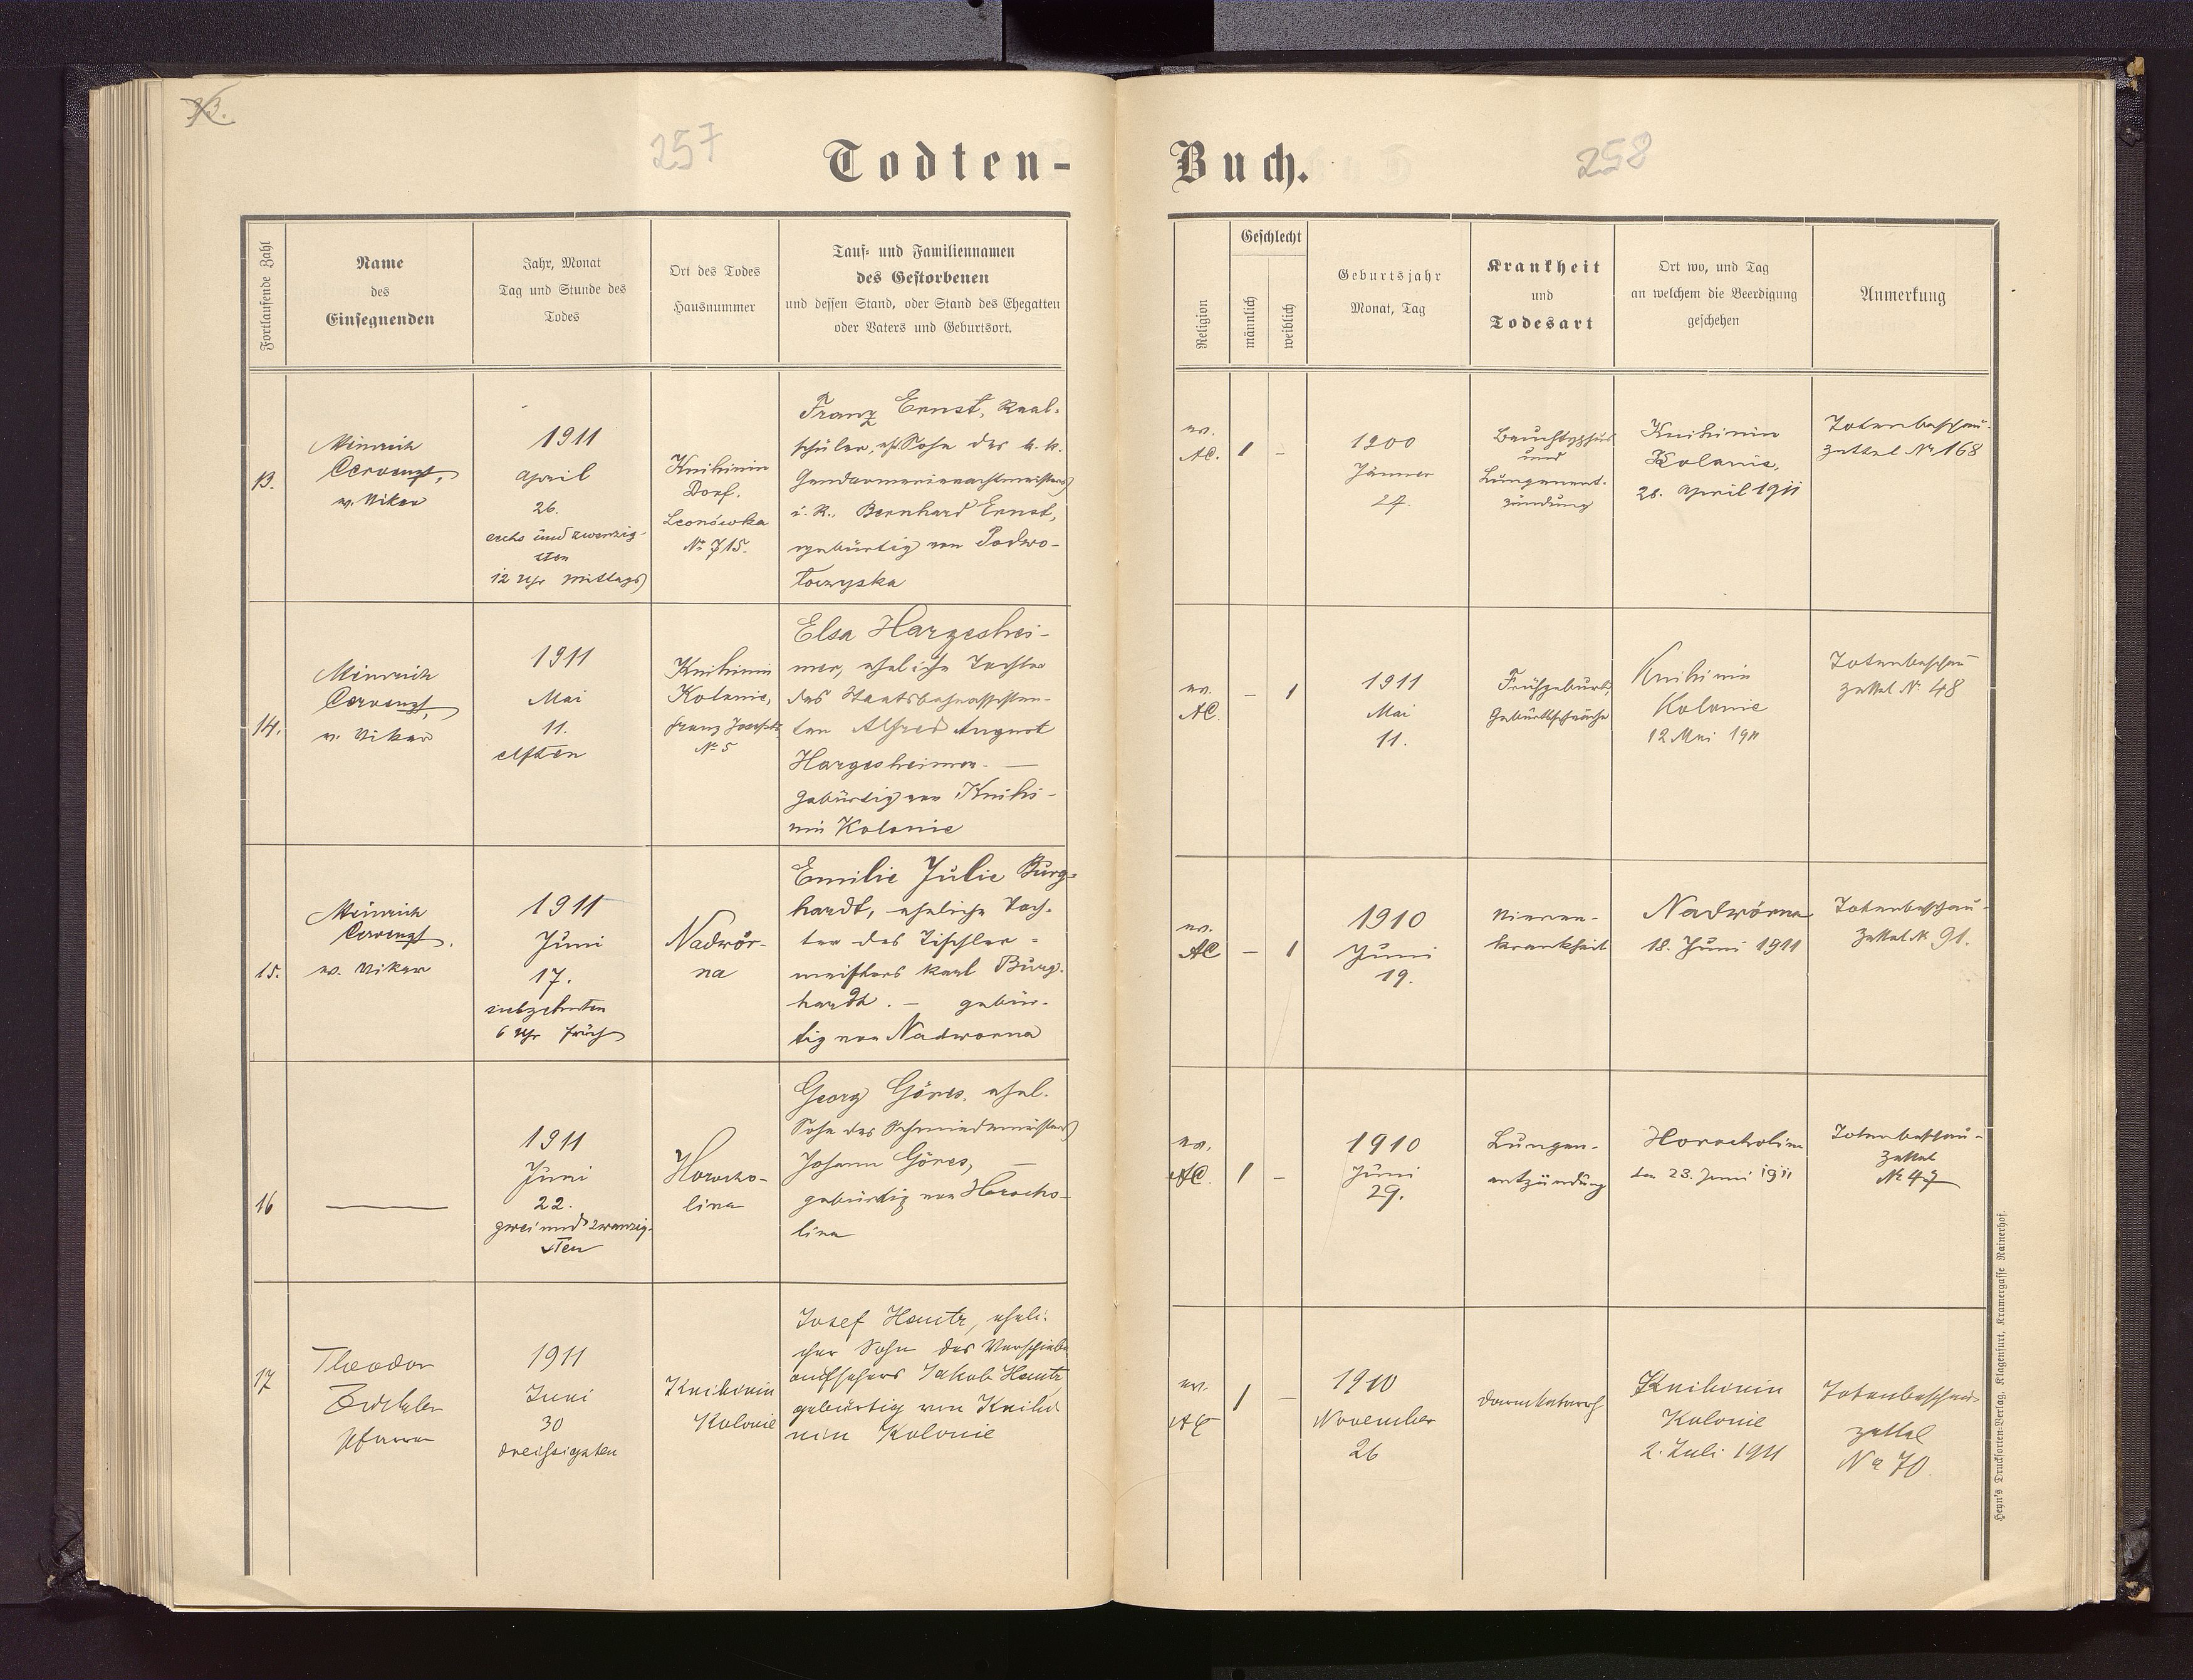 257
258
Todten-
Buch.
Fortlaufende Zahl
Name
des
Einsegnenden
Jahr, Monat
Tag und Stunde des
Todes
Ort des Todes
Hausnummer
Tauf- und Familiennamen
des Gestorbenen
und dessen Stand, oder Stand des Ehegatten
oder Vaters und Geburtsort.
Religion
Geschlecht
männlich
weiblich
Geburtsjahr
Monat, Tag
Krankheit
und
Todesart
Ort wo, und Tag
an welchem die Beerdigung
geschehen
Anmerkung
13.
Heinrich
ev. Vikar
1911
April
26.
sechs und zwanzig-
sten
12 Uhr Mittags
Knihinin
Dorf.
Leonówka
Nr 715.
Franz Ernst, Real-
schüler, ehl. Sohn des k. k.
Gendarmeriewachtmeisters
i. R. Bernhard Ernst,
gebürtig von Podwo-
loczyska
ev.
AC.
1
-
1900
Jänner
27.
Bauchtyphus
und
Lungenent-
zündung
Knihinin
Kolonie,
28. April 1911
Totenbeschau-
zettel Nr 168
14.
Heinrich
ev. Vikar
1911
Mai
11.
elften
Knihinin
Kolonie,
Nr 5
Elsa Hargeshei-
mer, eheliche Tochter
des Staatsbahnassisten-
ten Alfred August
Hargesheimer. —
gebürtig von Knihi-
nin Kolonie
ev.
AC.
-
1
1911
Mai
11.
Frühgeburt,
Geburtsschwäche
Knihinin
Kolonie
12 Mai 1911
Totenbeschau
zettel Nr 48
15.
Heinrich
ev. Vikar
1911
Juni
17.
siebzehnten
6 Uhr früh
Nadwór-
na
Emilie Julie Burg-
hardt, eheliche Toch-
ter des Tischler-
meisters Karl Burg-
hardt. — gebür-
tig von Nadworna
ev.
AC
-
1
1910
Juni
19.
Nieren-
krankheit
Nadwórna
18. Juni 1911
Totenbeschau-
zettel N 91.
16
—
1911
Juni
22.
zwei und zwanzig-
sten
Horocho-
lina
Georg Göres, ehel.
Sohn des Schmiedemeisters
Johann Göres, —
gebürtig von Horocho-
lina
ev.
AC.
1
-
1910
Juni
29.
Lungen-
entzündung
Horocholina
den 23. Juni 1911
Totenbeschau-
zettel
Nr 47
17
Theodor
Zöckler
Pfarrer
1911
Juni
30
dreissigsten
Knihinin
Kolonie
Josef Hautz, eheli-
cher Sohn des Verschieb-
aufsehers Jakob Hautz
gebürtig von Knihi
nin Kolonie
ev.
AC
1
-
1910
November
26
Darmkatarrh
Knihinin
Kolonie
2. Juli 1911
Totenbeschau-
zettel
Nr 70.
Heyn's Drucksorten-Verlag, Klagenfurt, Kramergasse Rainerhof.